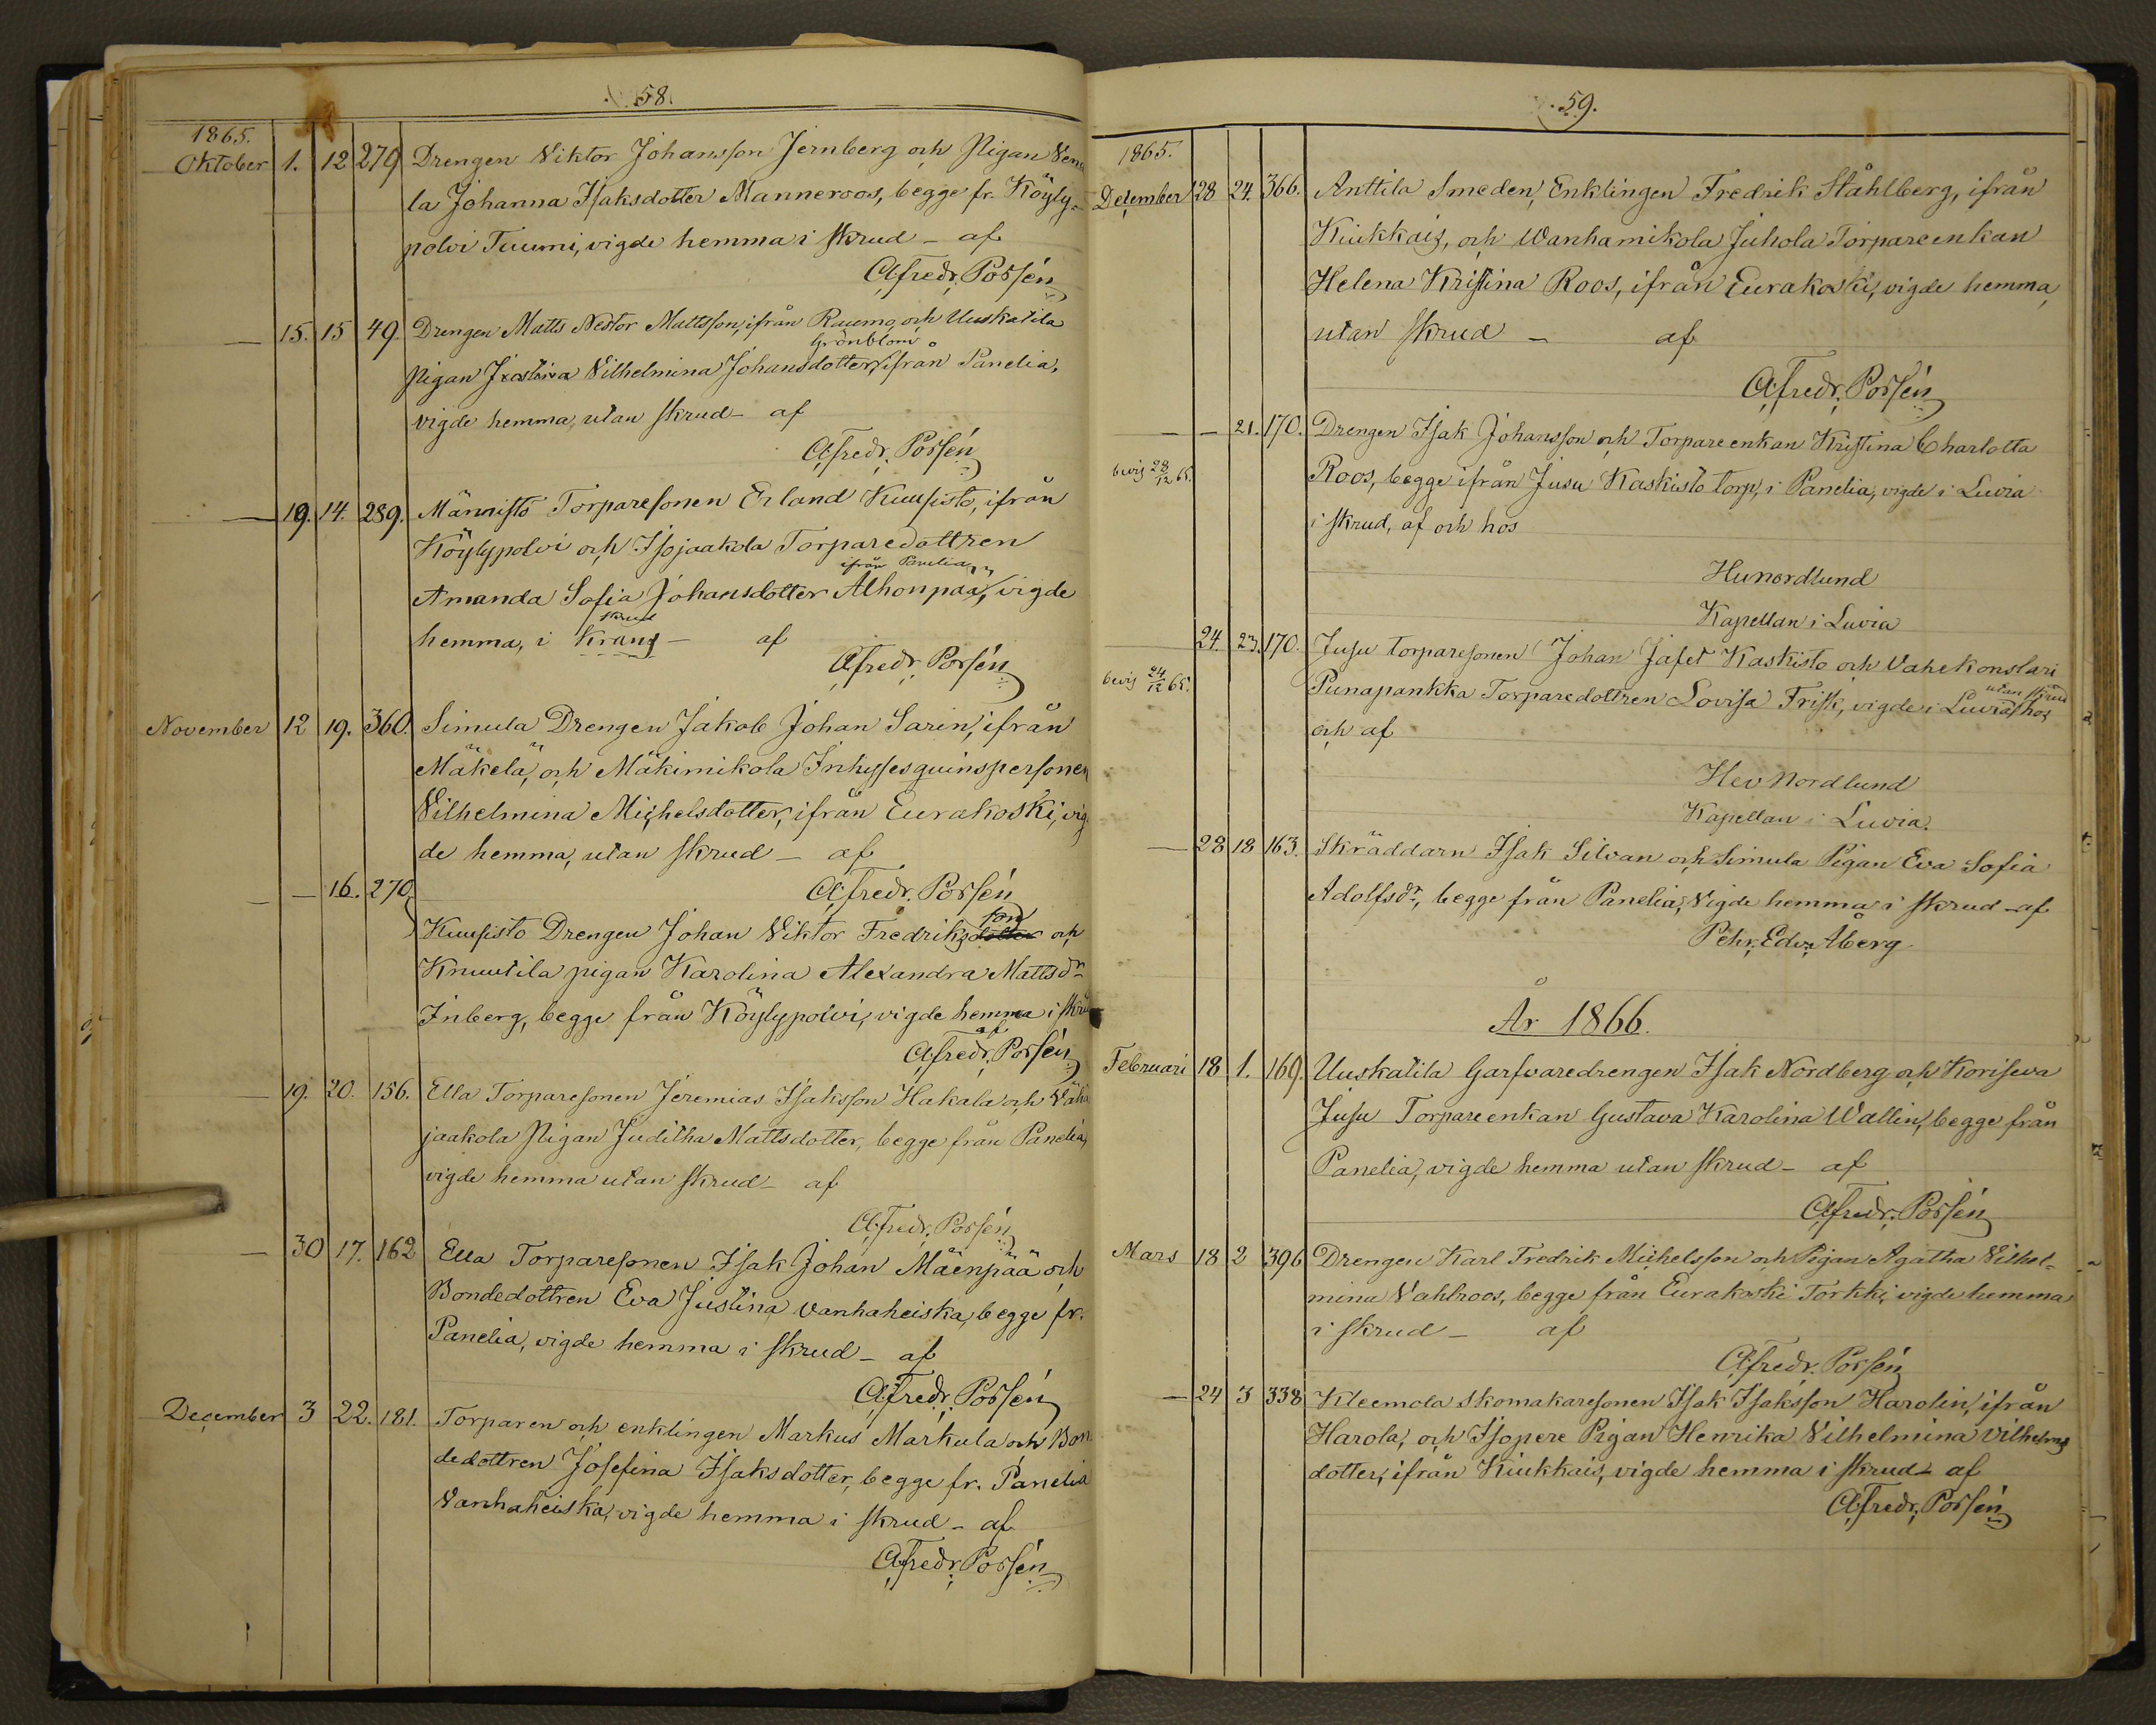 58.
1865.
Oktober 1. 12 279 Drengen Viktor Johansson Jernberg och Pigan Vend
la Johanna Isaksdotter Manneroos, begge fr. Köyly-
polvi Tuumi, vigde hemma i skrud – af
A, Fredr. Porsén
— 15. 15 49. Drengen Matts Nestor Mattsson, ifrån Raumo, och Uuskatila
Grönblom
pigan Justina Vilhelmina Johansdotter, ifrån Panelia,
vigde hemma, utan skrud – af
A, Fredr. Porsén
— 19. 14. 289. Männistö Torparesonen Erland Kuusisto, ifrån
Köylypolvi och Isojaakola Torparedottren
ifrån Panelia
Amanda Sofia Johansdotter Alhonpää, vigde
skrud
hemma, i Krans – af
A, Fredr. Porsén
November 12 19. 360. Simula Drengen Jakob Johan Sarin, ifrån
Mäkelä, och Mäkimikola Inhysesqvinspersonen
Vilhelmina Michelsdotter, ifrån Eurakoski, vig-
de hemma, utan skrud – af
A, Fredr. Porsén
— — 16. 270.
son
Kuusisto Drengen Johan Viktor Fredriksdotter och
Knuutila pigan Karolina Alexandra Mattsdr
Inberg, begge från Köylypolvi, vigde hemma i skrud
af
A, Fredr. Porsén
— 19. 20. 156. Ella Torparesonen Jeremias Isaksson Hakala och Vähä
jaakola Pigan Juditha Mattsdotter, begge från Panelia,
vigde hemma utan skrud – af
A, Fredr. Porsén
— 30 17. 162 Ella Torparesonen Isak Johan Mäenpää och
Bondedottren Eva Justina Vanhaheiska, begge fr.
Panelia, vigde hemma i skrud – af
A, Fredr. Porsén
December 3 22. 181. Torparen och enklingen Markus Markula och Bon-
dedottren Josefina Isaksdotter, begge fr. Panelia
Vanhaheiska, vigde hemma i skrud – af
A, Fredr. Porsén
59.
1865.
December 28 24. 366. Anttila Smeden, Enklingen Fredrik Ståhlberg, ifrån
Kiukkais, och Wanhamikola Juhola Torpareenkan
Helena Kristina Roos, ifrån Eurakoski, vigde hemma,
utan skrud – af
A, Fredr. Porsén
— — 21. 170. Drengen Isak Johansson och Torpareenkan Kristina Charlotta
bevis 28/12 65. Roos, begge ifrån Jusu Kaskisto torp, i Panelia, vigde i Luvia
i skrud, af och hos
Nordlund
Kapellan i Luvia
24. 23. 170. Jusu torparesonen Johan Jafet Kaskisto och Vahekonstari
utan skrud
bevis 24/12 65. Punapankka Torparedottren Lovisa Frisk, vigde i Luvia, hos
och af
Nordlund
Kapellan i Luvia.
— 28 18 163. Skräddarn Isak Silvan och Simula Pigan Eva Sofia
Adolfsdr, begge från Panelia, Vigde hemma i skrud – af
Pehr. Edv. Åberg
År 1866.
Februari 18 1. 169. Uuskatila Garfvaredrengen Isak Nordberg och Koriseva
Jusu Torpareenkan Gustava Karolina Wallin, begge från
Panelia, vigde hemma utan skrud – af
A, Fredr. Porsén
Mars 18 2 396 Drengen Karl Fredrik Michelsson och Pigan Agatha Vilhel-
mina Vahlroos, begge från Eurakoski Torkki, vigde hemma
i skrud – af
A, Fredr. Porsén
— 24 3 338 Kleemola skomakaresonen Isak Isaksson Harolin, ifrån
Harola, och Isopere Pigan Henrika Vilhelmina Vilhelms
dotter, ifrån Kiukkais, vigde hemma i skrud – af
A, Fredr. Porsén